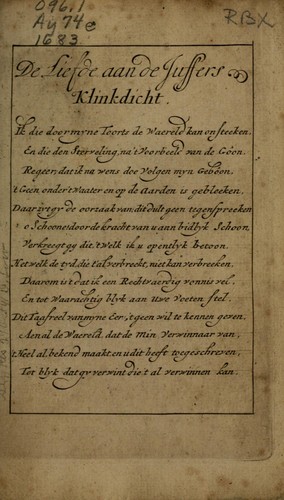 096.1
Ay 74e
1683
RBX
De Liefde aan de Juffers
Klinkdicht.
Ik die door myne Toorts de Waereld kan onsteeken,
En die den Sterveling, na 't Voorbeeld van de Goon.
Regeer, dat ik na wens doe Volgen myn Geboon.
't Geen onder 't Waater en op de Aarden is gebleeken.
Daar zyt gy de oorzaak van, dit dult geen tegenspreeken
o Schoonen door de kracht van u aanbidlyk Schoon,
Verkreegt gy dit, 't Welk ik u opentlyk betoon.
Het welk de tyd, die 't al verbreekt, niet kan verbreeken.
Daarom is 't dat ik een Rechtvaerdig vonnis vel.
En tot Waarachtig blyk aan Uwe Voeten stel.
Dit Tafreel van myne Eer, 't geen wil te kennen geven,
Aen al de Waereld, dat de Min Verwinnaar van,
't Heel al, bekend maakt en u dit heeft toegeschreven,
Tot blyk dat gy verwint die 't al verwinnen kan.